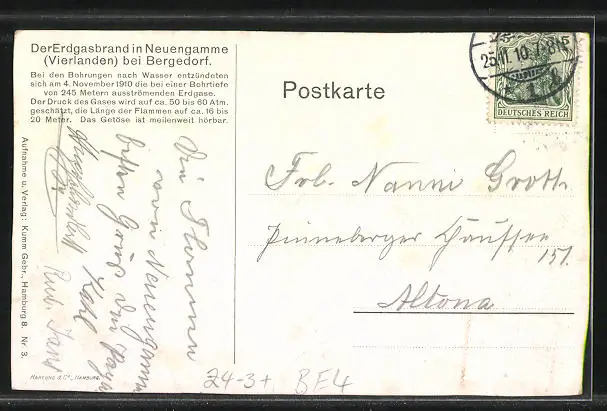 Der Erdgasbrand in Neuengamme
(Vierlanden) bei Bergedorf.
Bei den Bohrungen nach Wasser entzündeten
sich am 4. November 1910 die bei einer Bohrtiefe
von 245 Metern ausströmenden Erdgase.
Der Druck des Gases wird auf ca. 50 bis 60 Atm.
geschätzt, die Länge der Flammen auf ca. 16 bis
20 Meter. Das Getöse ist meilenweit hörbar.
Aufnahme u. Verlag: Kumm Gebr., Hamburg 8. Nr. 3.
HARTUNG & Co., HAMBURG.
Die Flammen
von Neuengamme
Postkarte
25.11.10.
5
DEUTSCHES REICH
Frl. Nanni Groth
Pinneberger Chaussee
151.
Altona
24-3+ BE4